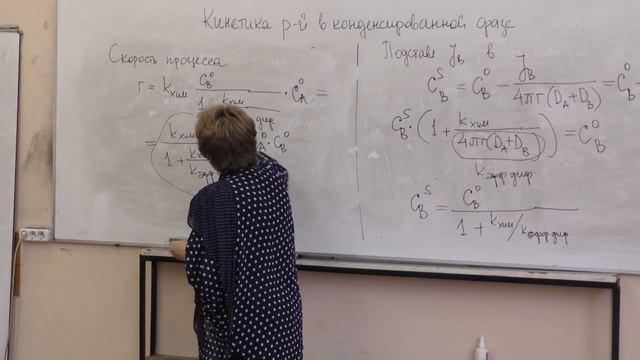 Кинетика р-й в конденсированной фазе
Скорость процесса
r = k хим C_B^0 / (1 + k хим / диф) · C_A^0 =
= k хим / (1 + k хим / k эфф) · C_B^0
Подставл J_B в
C_B^S = C_B^0 - J_B / 4πr(D_A+D_B) = C_B^0 -
C_B^S · (1 + k хим / 4πr(D_A+D_B)) = C_B^0
k эфф диф.
C_B^S = C_B^0 / (1 + k хим / k эфф диф)